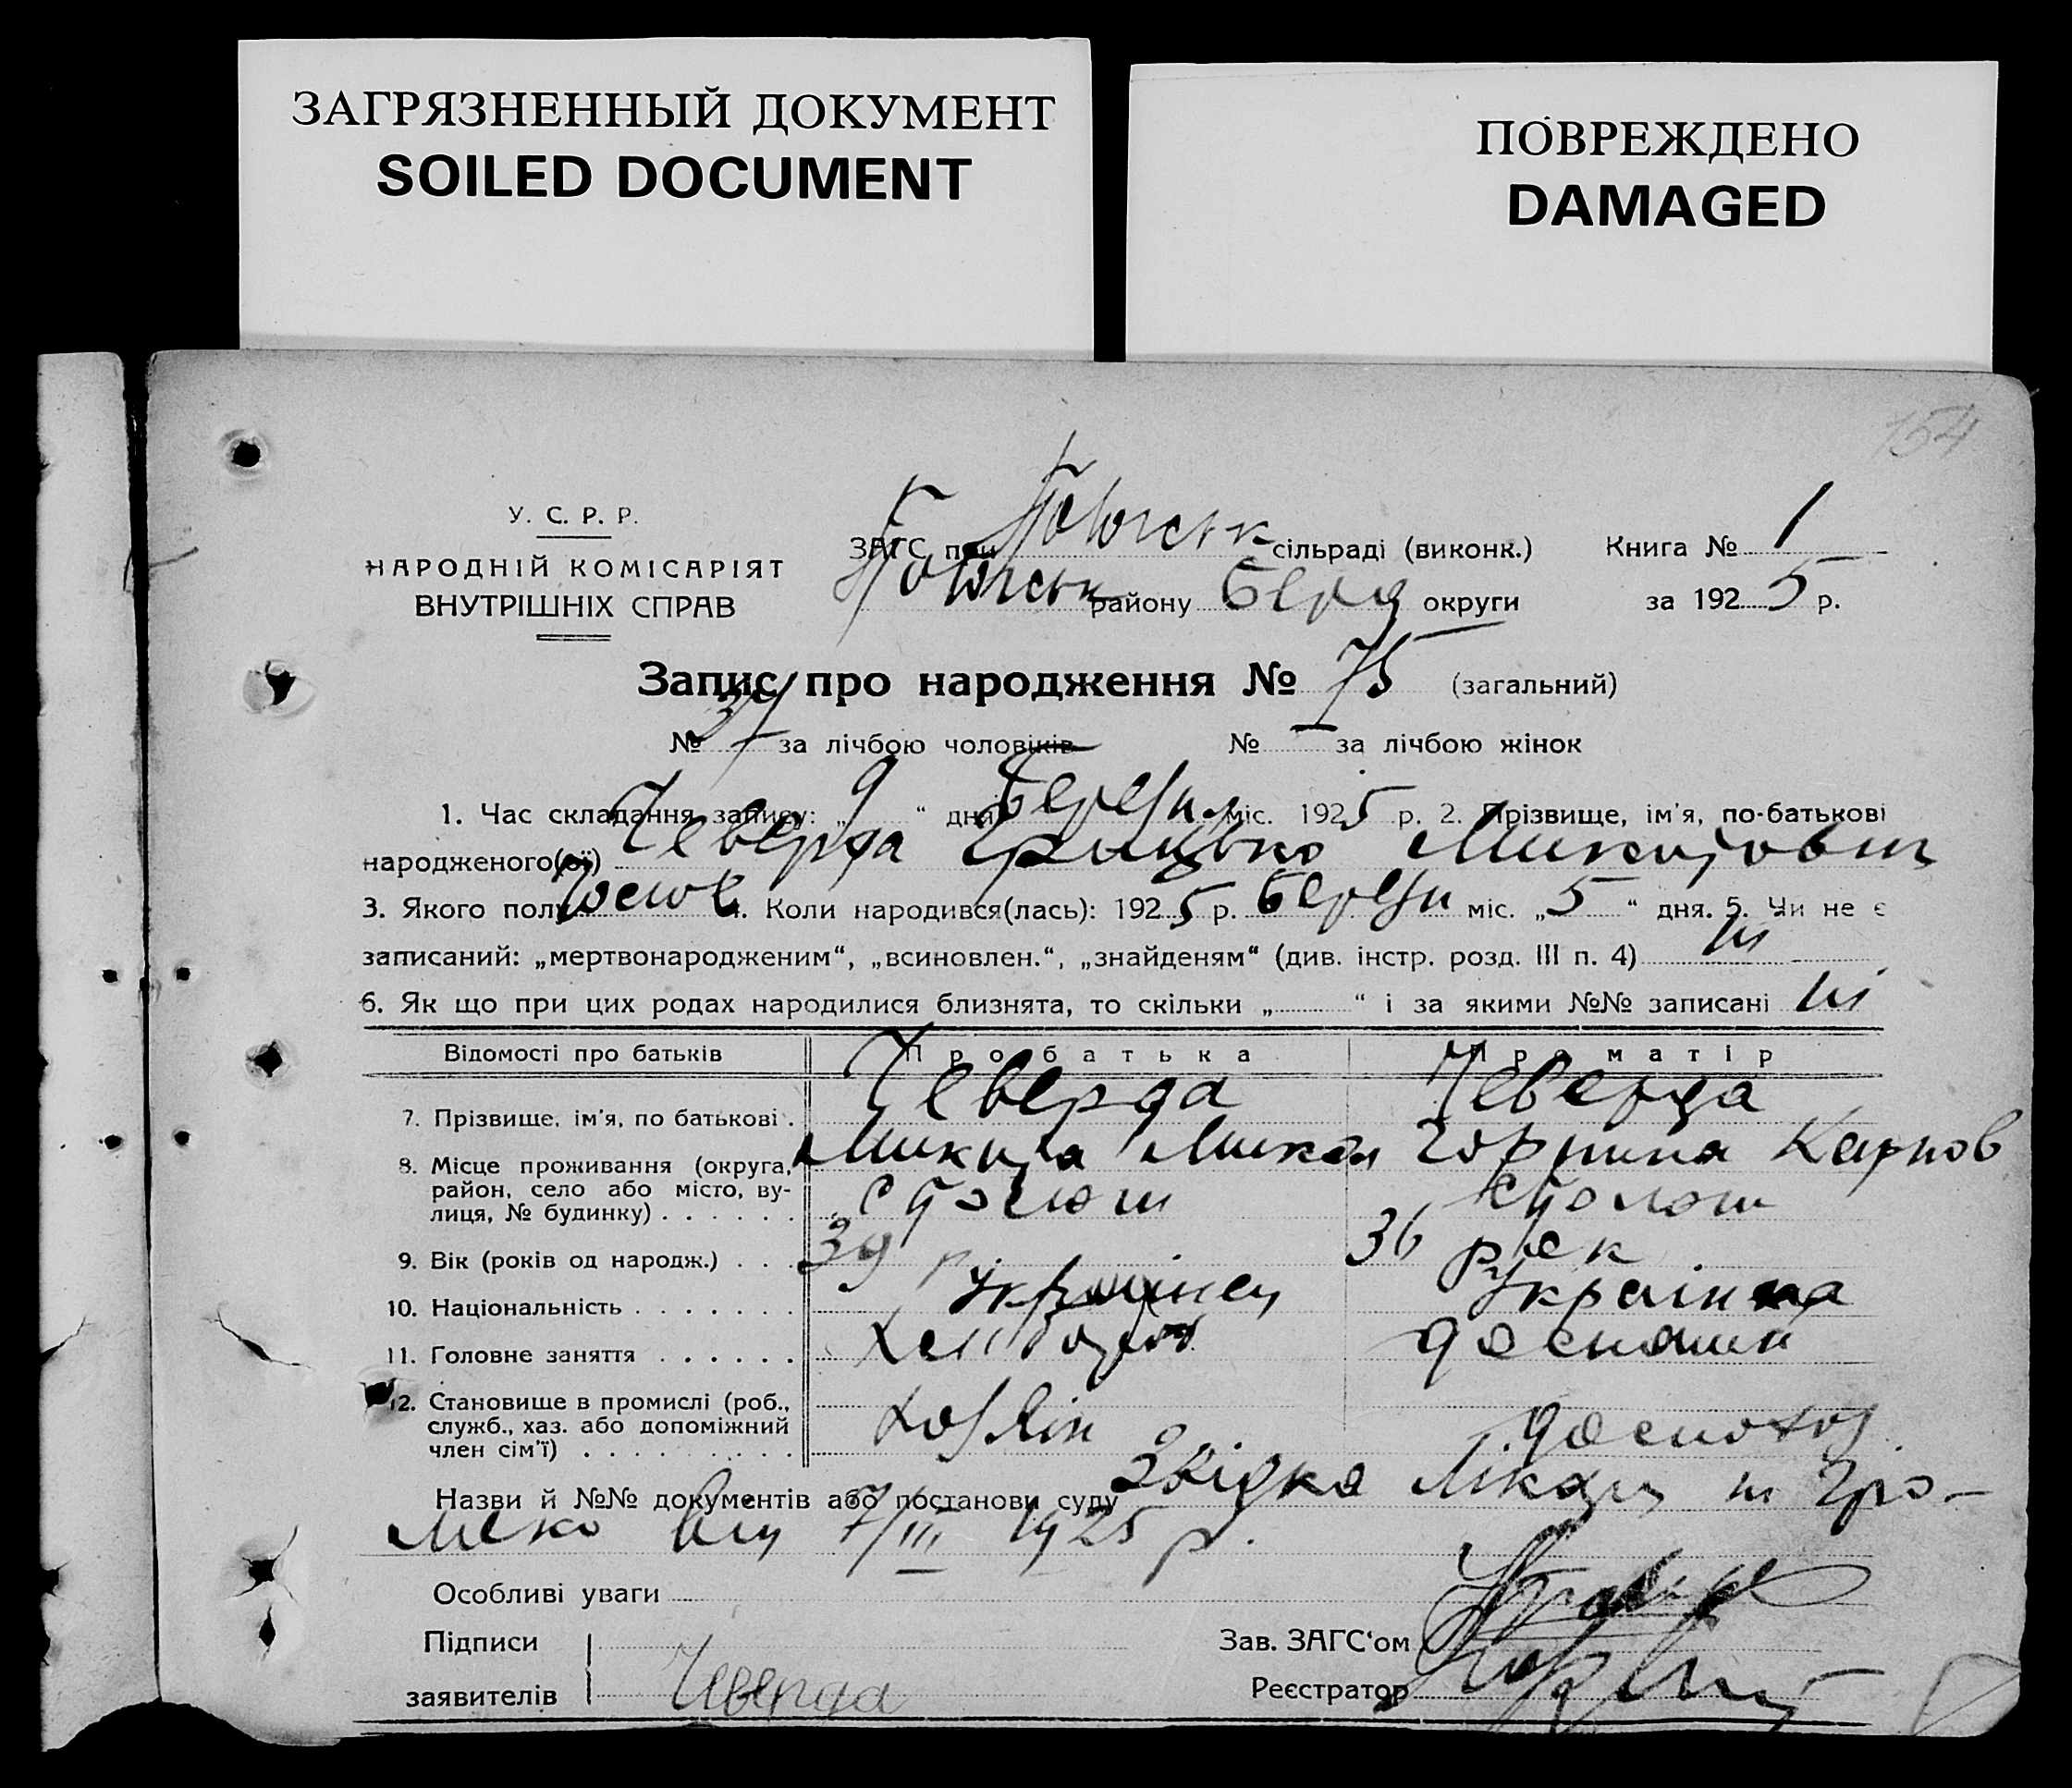 ЗАГРЯЗНЕННЫЙ ДОКУМЕНТ
SOILED DOCUMENT
ПОВРЕЖДЕНО
DAMAGED
154
У. С. Р. Р.
НАРОДНІЙ КОМІСАРІЯТ
ВНУТРІШНІХ СПРАВ
ЗАГС при сільраді (виконк.)
району Берд округи
Книга № 1
за 1925 р.
Запис про народження № 75 (загальний)
№ 37 за лічбою чоловіків № — за лічбою жінок
1. Час складання запису: „ 9 “ дня березня міс. 1925 р. 2. Прізвище, ім'я, по-батькові
народженого(ої) Чеверда Грицько Микитович
3. Якого полу 4. Коли народився(лась): 1925 р. березня міс. „ 5 “ дня. 5. Чи не є
записаний: „мертвонародженим“, „всиновлен.“, „знайденям“ (див. інстр. розд. III п. 4) ні
6. Як що при цих родах народилися близнята, то скільки „ “ і за якими №№ записані ні
Відомості про батьків Про батька Про матір
7. Прізвище, ім'я, по батькові . Чеверда Чеверда
Микита Микол Горпина Карпов
8. Місце проживання (округа,
район, село або місто, ву-
лиця, № будинку) . . . . . .
9. Вік (років од народж.) . . . 39 р 36 рок
10. Національність . . . . . . . Українец Українка
11. Головне заняття . . . . . .
12. Становище в промислі (роб.,
служб., хаз. або допоміжний
член сім'ї) . . . . . . . . . Хозяїн
Назви й №№ документів або постанови суду
від 7/III 1925 р.
Особливі уваги
Підписи
заявителів Чеверда
Зав. ЗАГС‘ом
Реєстратор